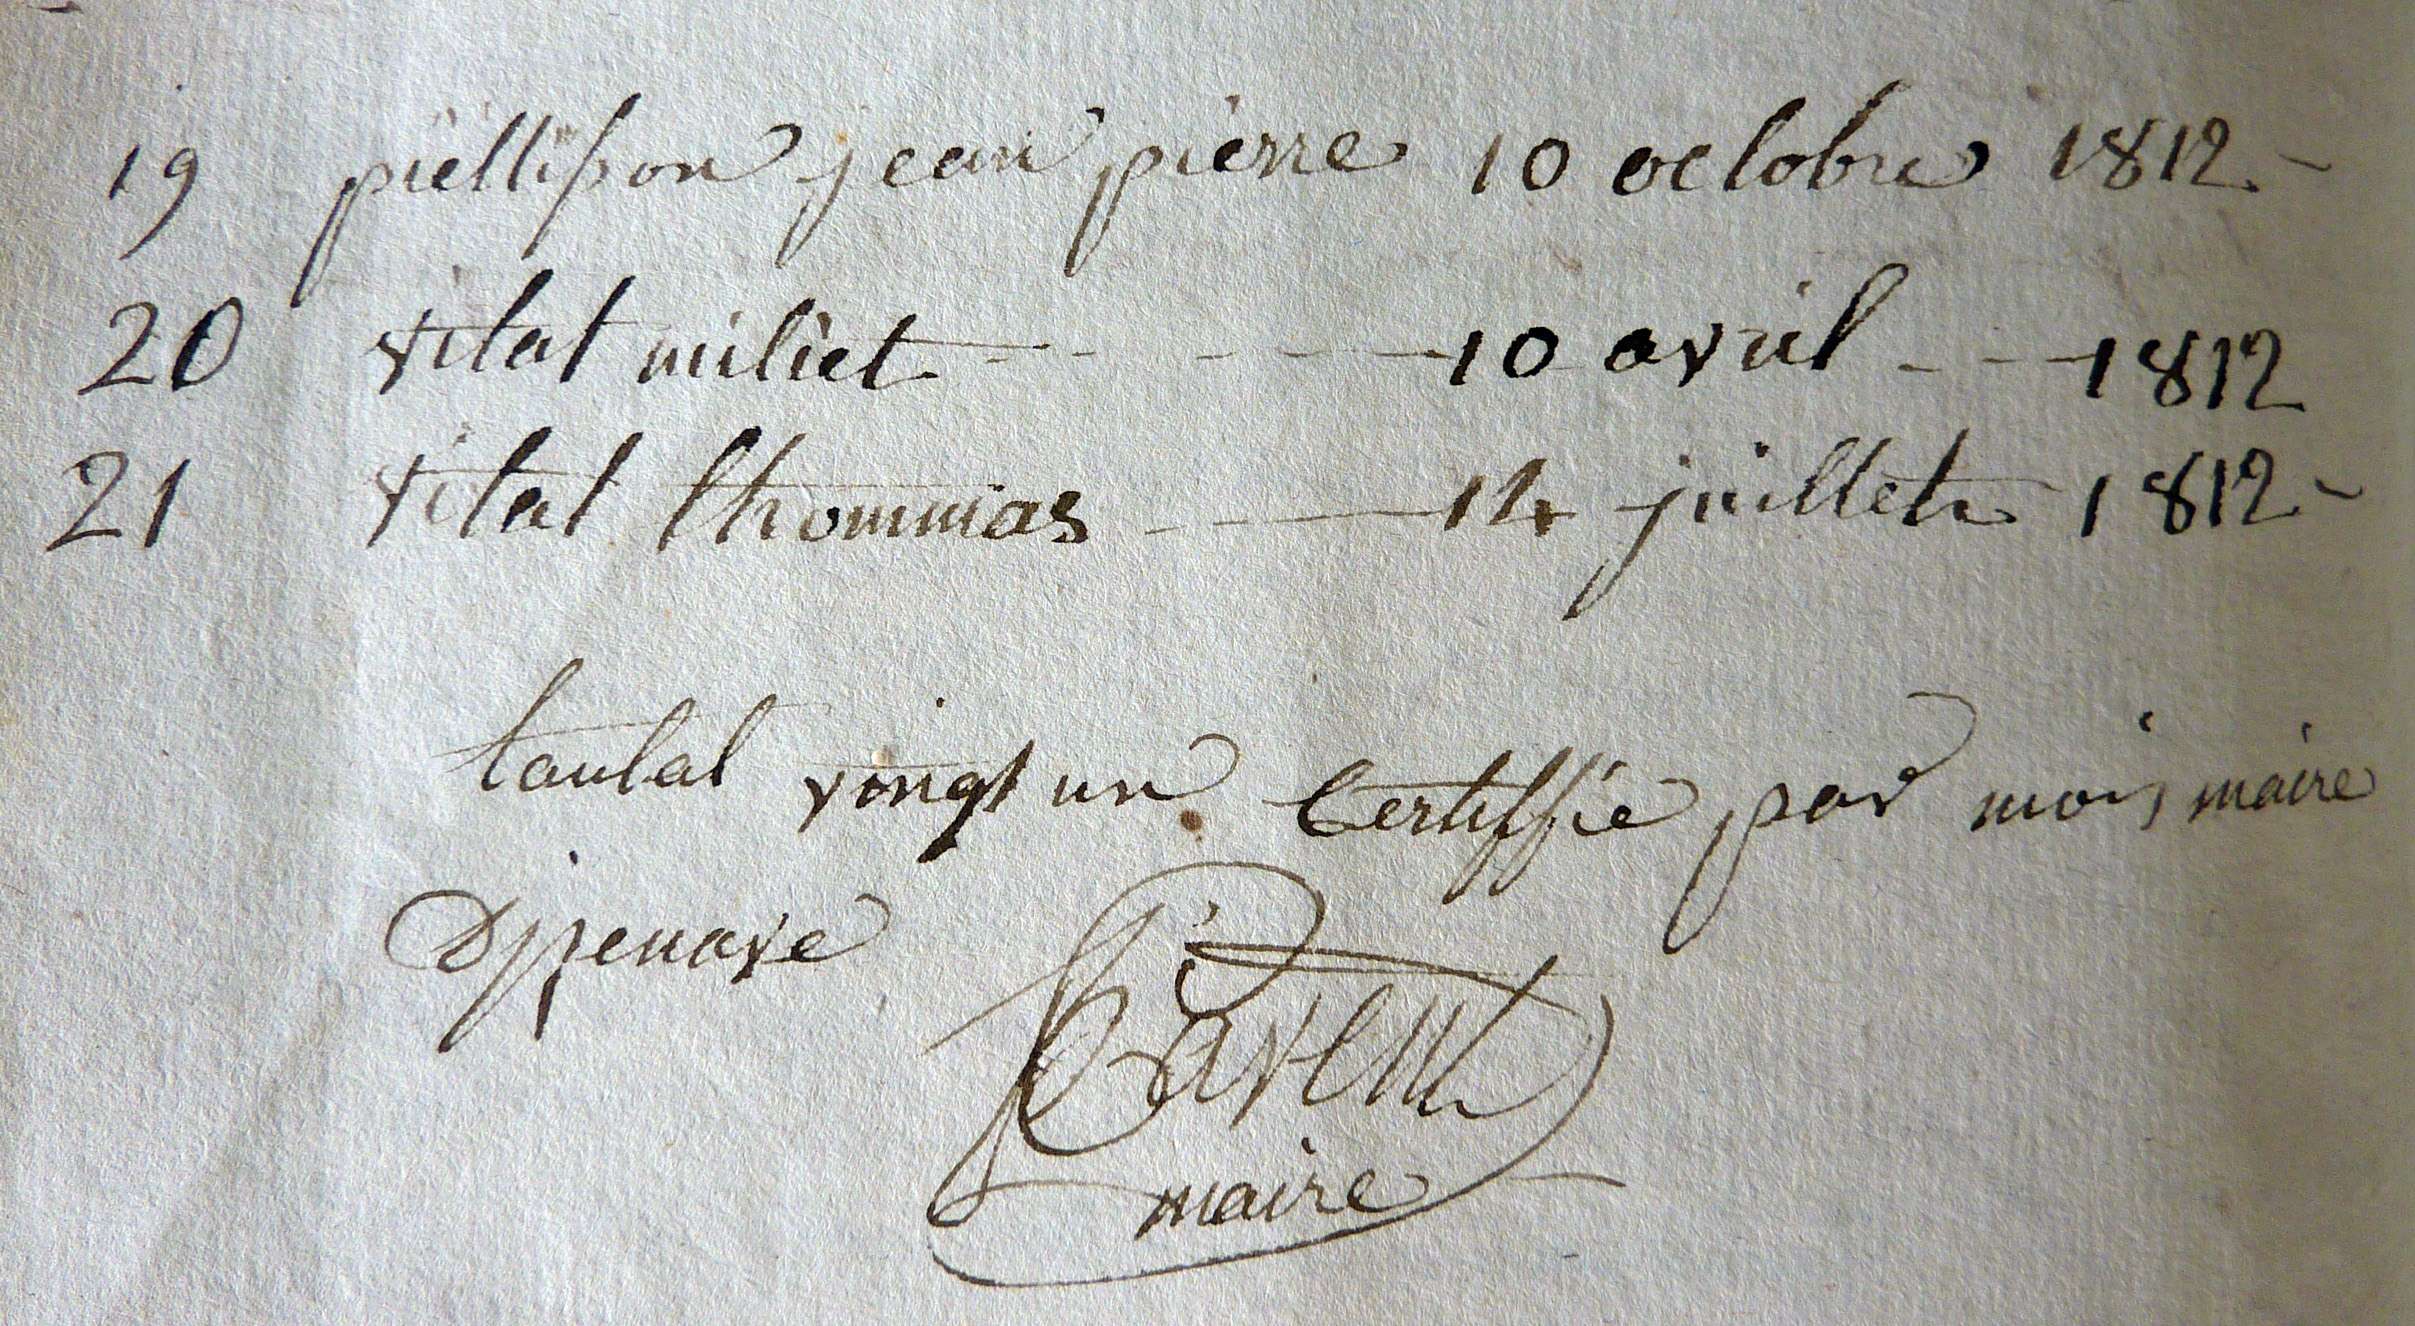 19 piellisson jean pierre 10 octobre 1812
20 vital miliet 10 avril 1812
21 vital thommas 14 juillet 1812
toutal vingt un Certiffie par mois maire
Djsenave
Bavent
maire